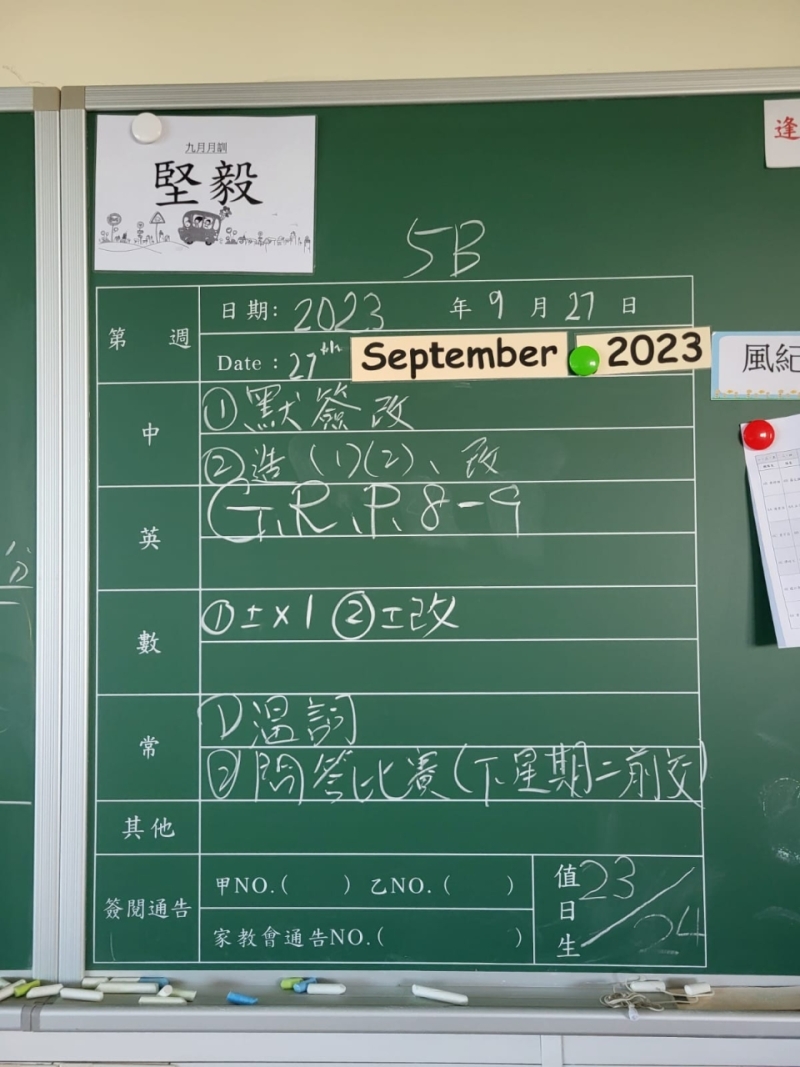 九月月訓
堅毅
逢
5B
第 週
日期: 2023 年 9 月 27 日
Date : 27th September 2023
風紀
中
①默簽改
②造(1)(2)、改
英
G.R.P. 8-9
數
①±x1 ②±改
常
①溫詞
②問答比賽(下星期二前交)
其他
簽閱通告
甲NO.( ) 乙NO.( )
家教會通告NO.( )
值日生 23/24